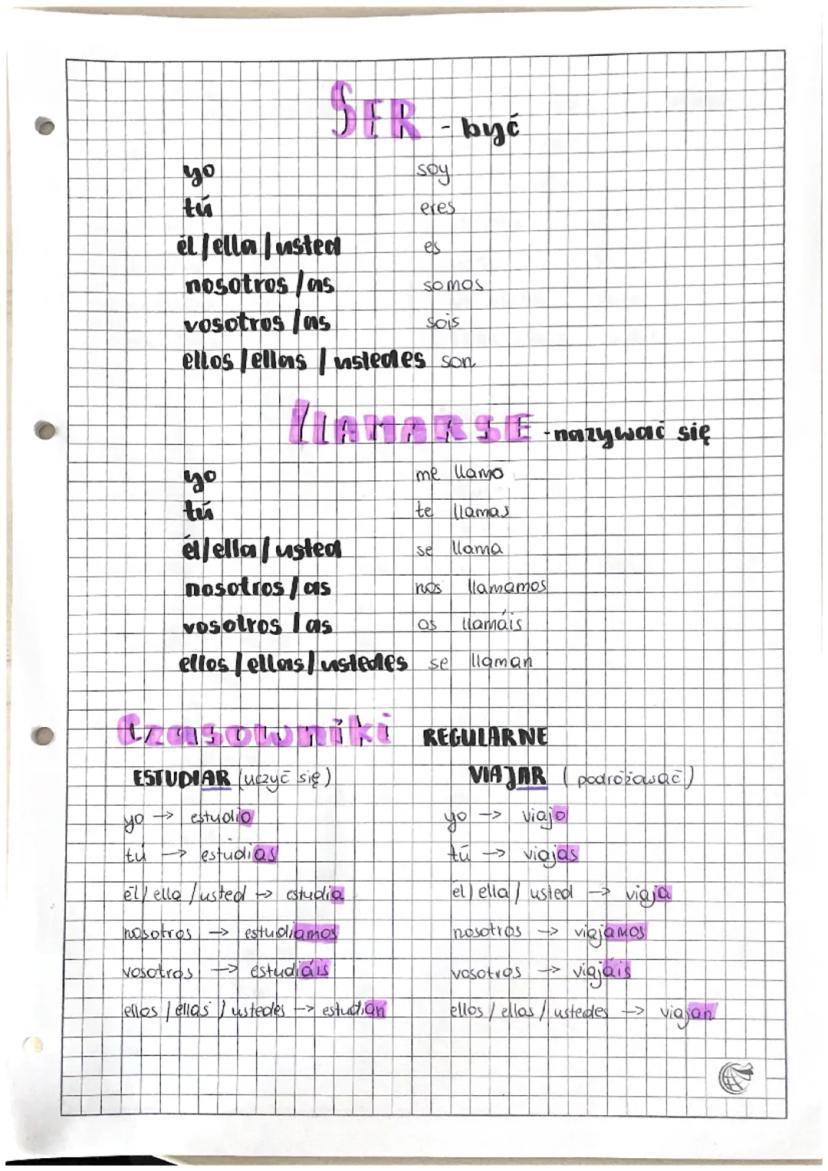 SER - być
yo soy
tú eres
él/ella/usted es
nosotros/as somos
vosotros/as sois
ellos/ellas/ustedes son
LLAMARSE - nazywać się
yo me llamo
tú te llamas
él/ella/usted se llama
nosotros/as nos llamamos
vosotros/as os llamáis
ellos/ellas/ustedes se llaman
Czasowniki REGULARNE
ESTUDIAR (uczyć się)
yo → estudio
tú → estudias
él/ella/usted → estudia
nosotros → estudiamos
vosotros → estudiáis
ellos/ellas/ustedes → estudian
VIAJAR (podróżować)
yo → viajo
tú → viajas
él/ella/usted → viaja
nosotros → viajamos
vosotros → viajáis
ellos/ellas/ustedes → viajan